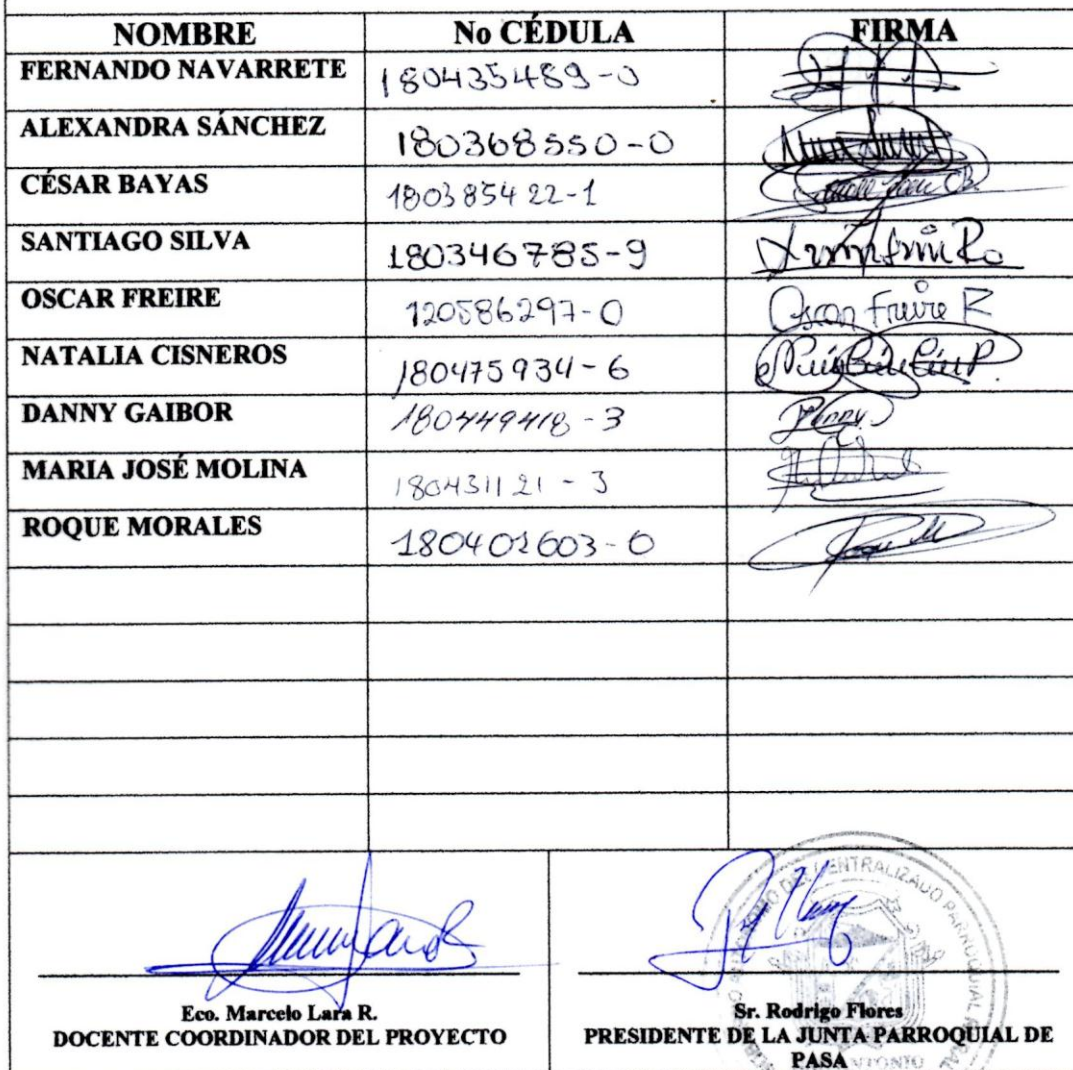 NOMBRE No CÉDULA FIRMA
FERNANDO NAVARRETE 180435489-0
ALEXANDRA SÁNCHEZ 180368550-0
CÉSAR BAYAS 180385422-1
SANTIAGO SILVA 180346785-9
OSCAR FREIRE 120586297-0 Oscar Freire R
NATALIA CISNEROS 180475934-6
DANNY GAIBOR 180449418-3 Danny
MARIA JOSÉ MOLINA 180431121-3
ROQUE MORALES 180402603-0
Eco. Marcelo Lara R.
DOCENTE COORDINADOR DEL PROYECTO
Sr. Rodrigo Flores
PRESIDENTE DE LA JUNTA PARROQUIAL DE
PASA
PARROQUIAL RURAL